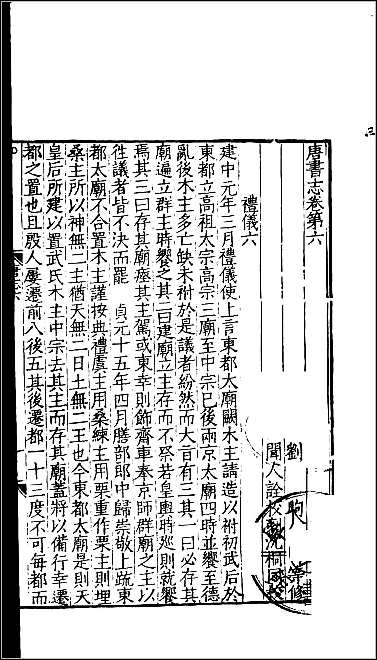 唐書志卷第六
劉 昫 等修
聞人詮校刻沈桐同校
禮儀六
建中元年三月禮儀使上言東都太廟闕木主請造以祔初武后於
東都立高祖太宗高宗三廟至中宗已後兩京太廟四時並饗至德
亂後木主多亡缺未祔於是議者紛然而大旨有三其一曰必存其
廟遍立群主時饗之其二曰建廟立主存而不祭若皇輿時巡則就饗
焉其三曰存其廟瘞其主駕或東幸則飾齋車奉京師群廟之主以
徃議者皆不決而罷 貞元十五年四月膳部郎中歸崇敬上疏東
都太廟不合置木主謹按典禮虞主用桑練主用栗重作栗主則埋
桑主所以神無二主猶天無二日土無二王也今東都太廟是則天
皇后所建以置武氏木主中宗去其主而存其廟蓋將以備行幸遷
都之置也且殷人屢遷前八後五其後遷都一十三度不可每都而